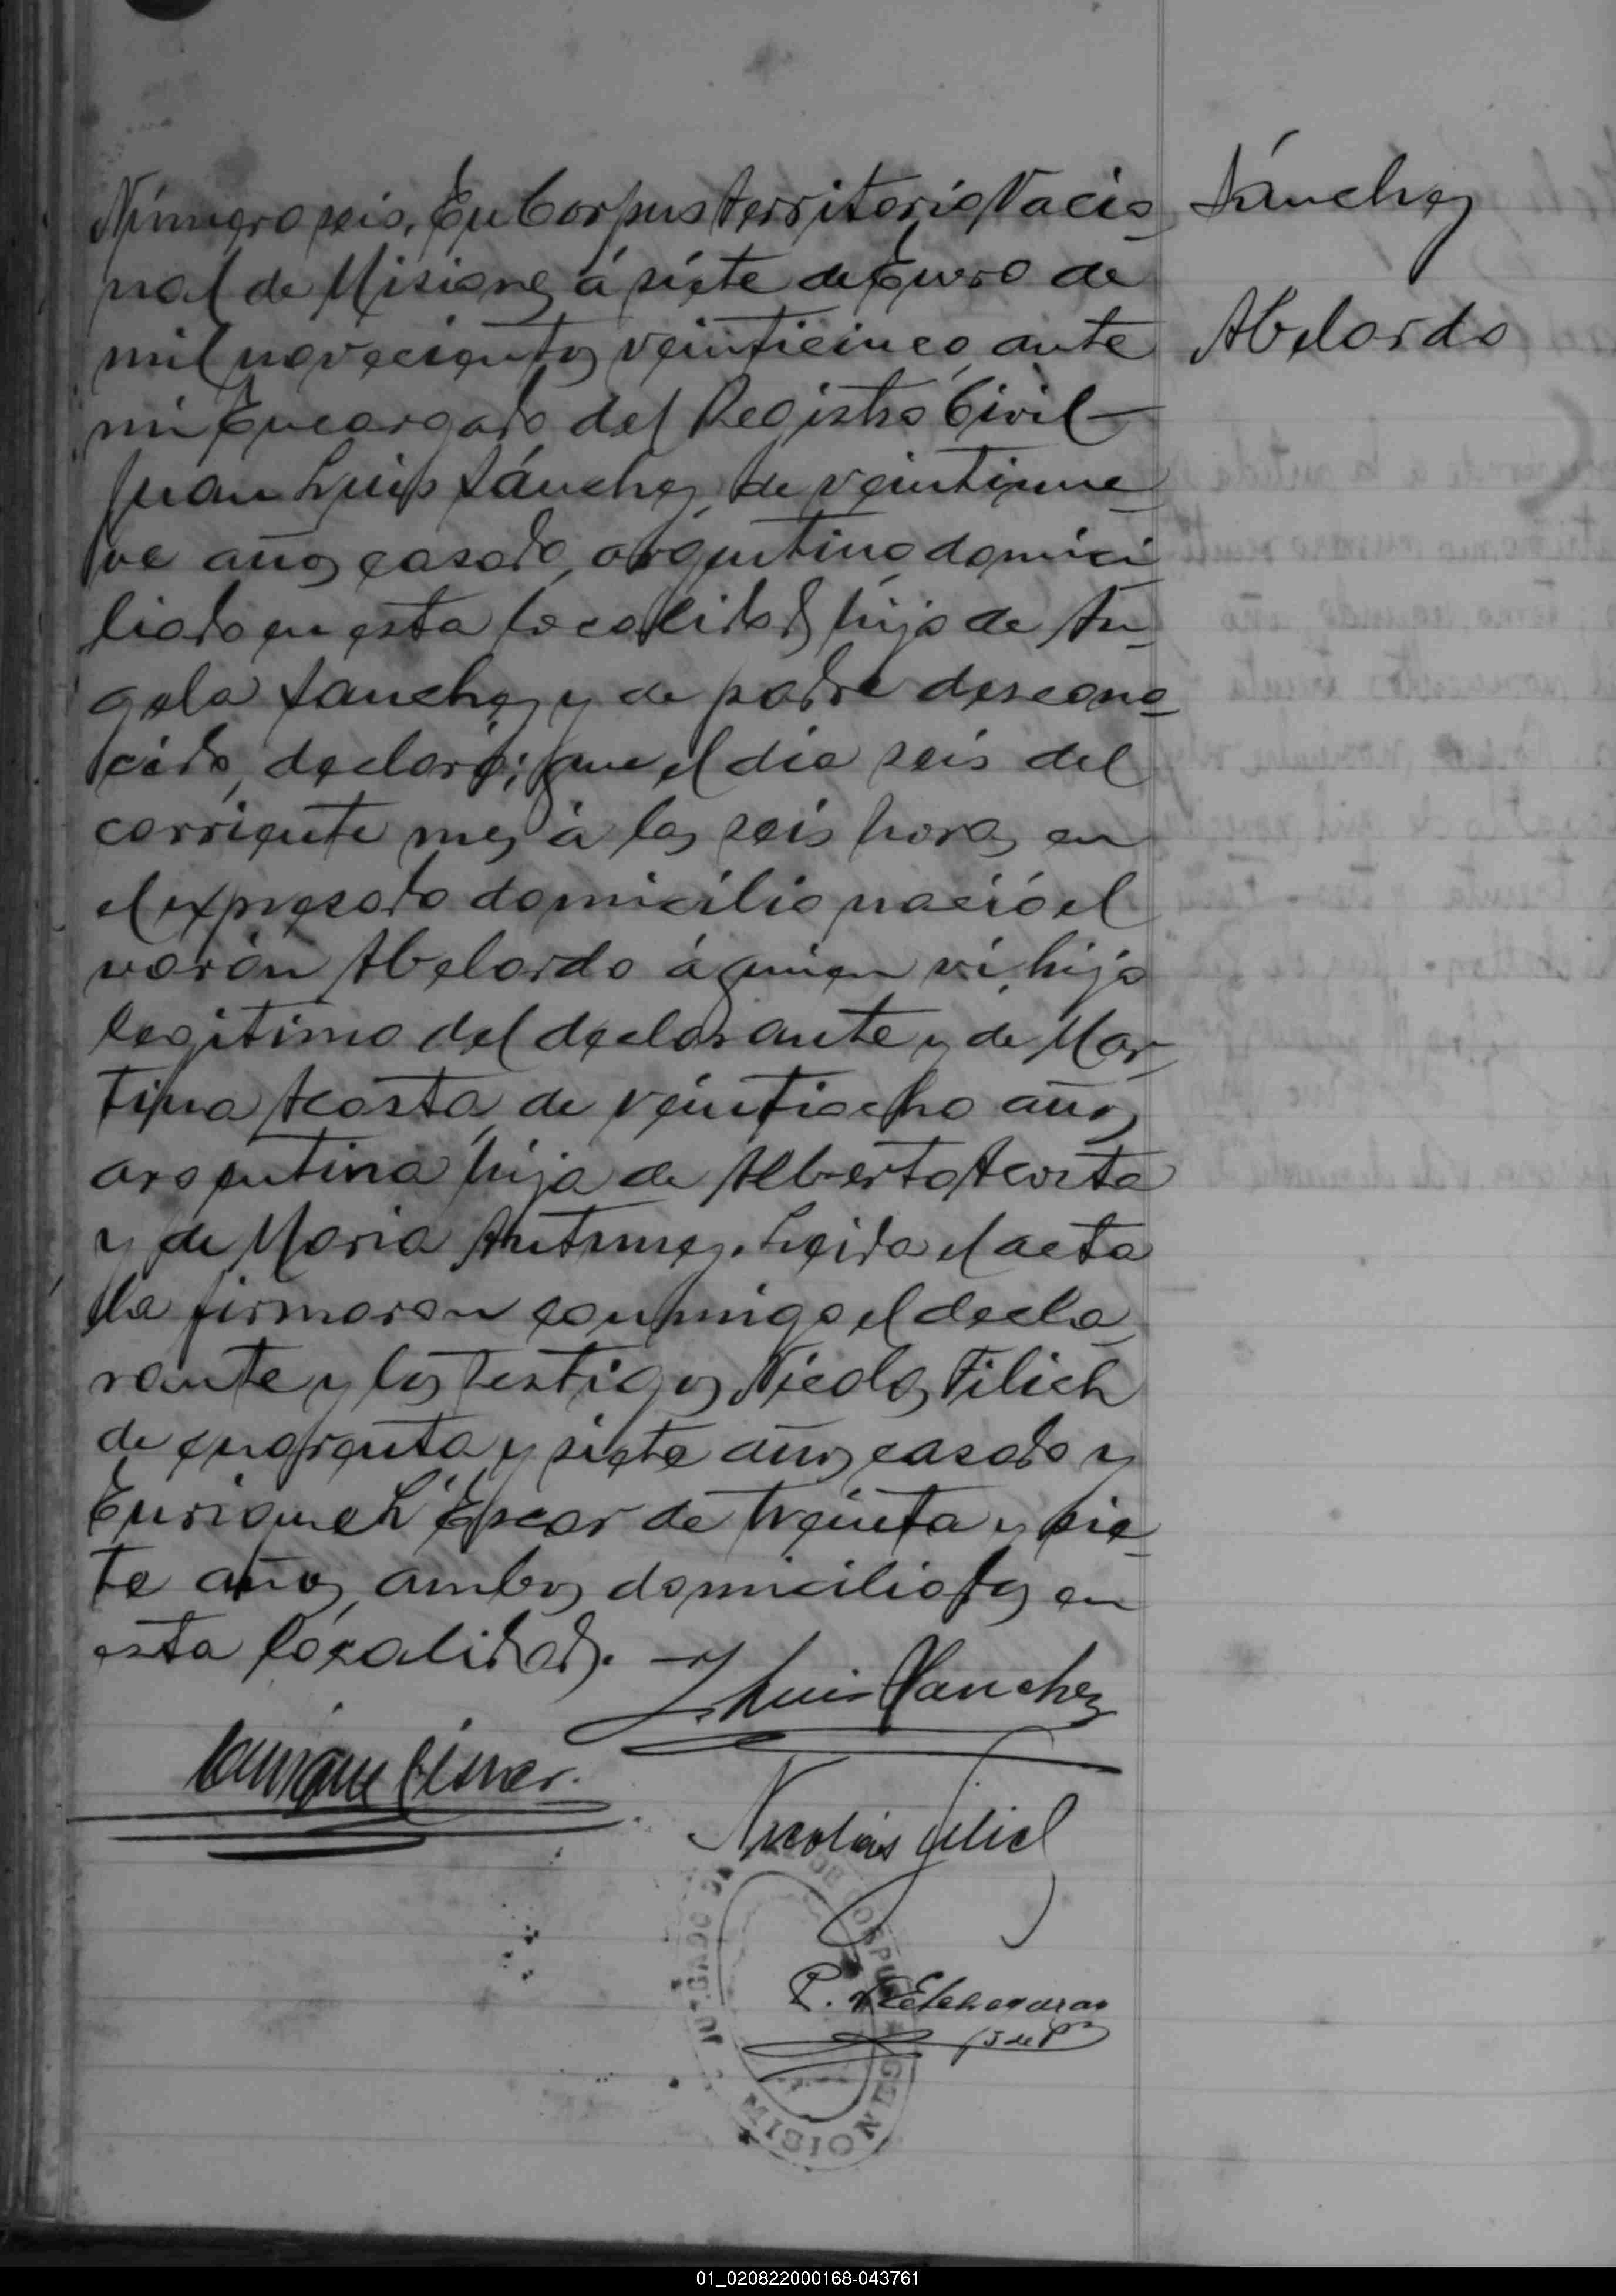 Número seis. En Corpus Territorio Nacio
Sánchez
nal de Misiones á siete de Enero de
Abelardo
mil novecientos veinticinco, ante
mi Encargado del Registro Civil —
Juan Luis Sánchez, de veintinue
ve años, casado, argentino domici
liado en esta localidad, hijo de An
gela Sanchez y de padre descono
cido, declaró; que el dia seis del
corriente mes á las seis horas en
el expresado domicilio nació el
varón Abelardo á quien ví, hijo
legitimo del declarante y de Mar
tina Acosta, de veintiocho años,
argentina, hija de Alberto Acosta
y de Maria Antunez. Leida el acta
la firmaron conmigo el decla
rante y los testigos Nicolas Filich
de cuarenta y siete años casado y
Enrique L' de treinta y sie
te años, ambos domiciliados en
esta localidad. —
J. Luis Sanchez
Enrique
Nicolás Filich
P. Etchegaray
J de P
JUZGADO DE DE CORPUS
MISIONES
01_020822000168-043761